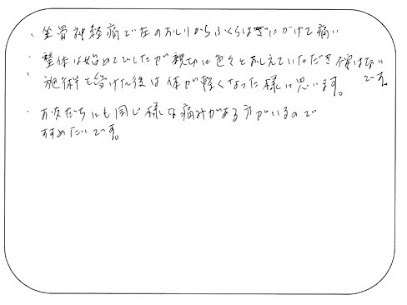 ・坐骨神経痛で左のおしりからふくらはぎにかけて痛い
・整体は始めてでしたが親切に色々とおしえていただき 不安はないです。
・施術を受けた後は体が軽くなった様に思います。
・お友だちにも同じ様な痛みがある方がいるので
すすめたいです。